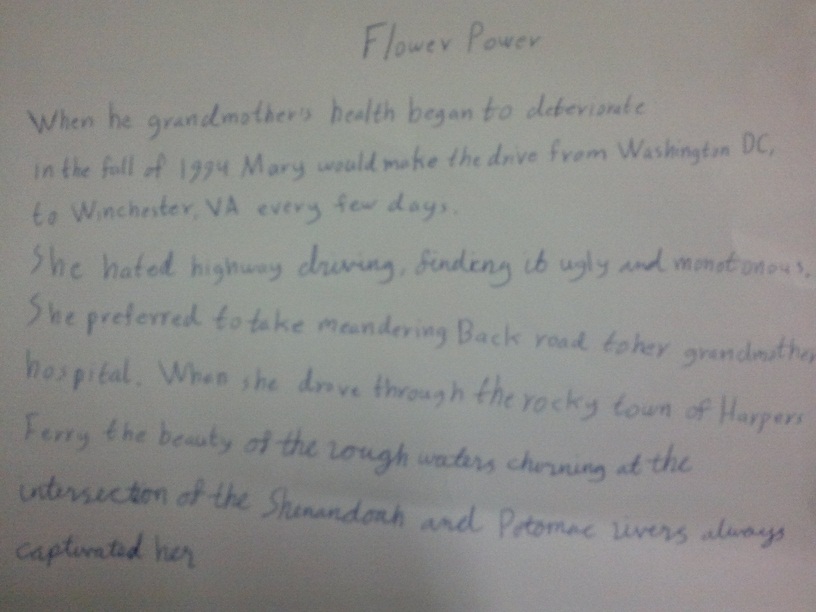 Flower Power
When he grandmother's health began to deteriorate
in the fall of 1994 Mary would make the drive from Washington DC,
to Winchester, VA every few days.
She hated highway driving, finding it ugly and monotonous.
She preferred to take meandering Back road to her grandmother
hospital. When she drove through the rocky town of Harpers
Ferry the beauty of the rough waters churning at the
intersection of the Shenandoah and Potomac rivers always
captivated her